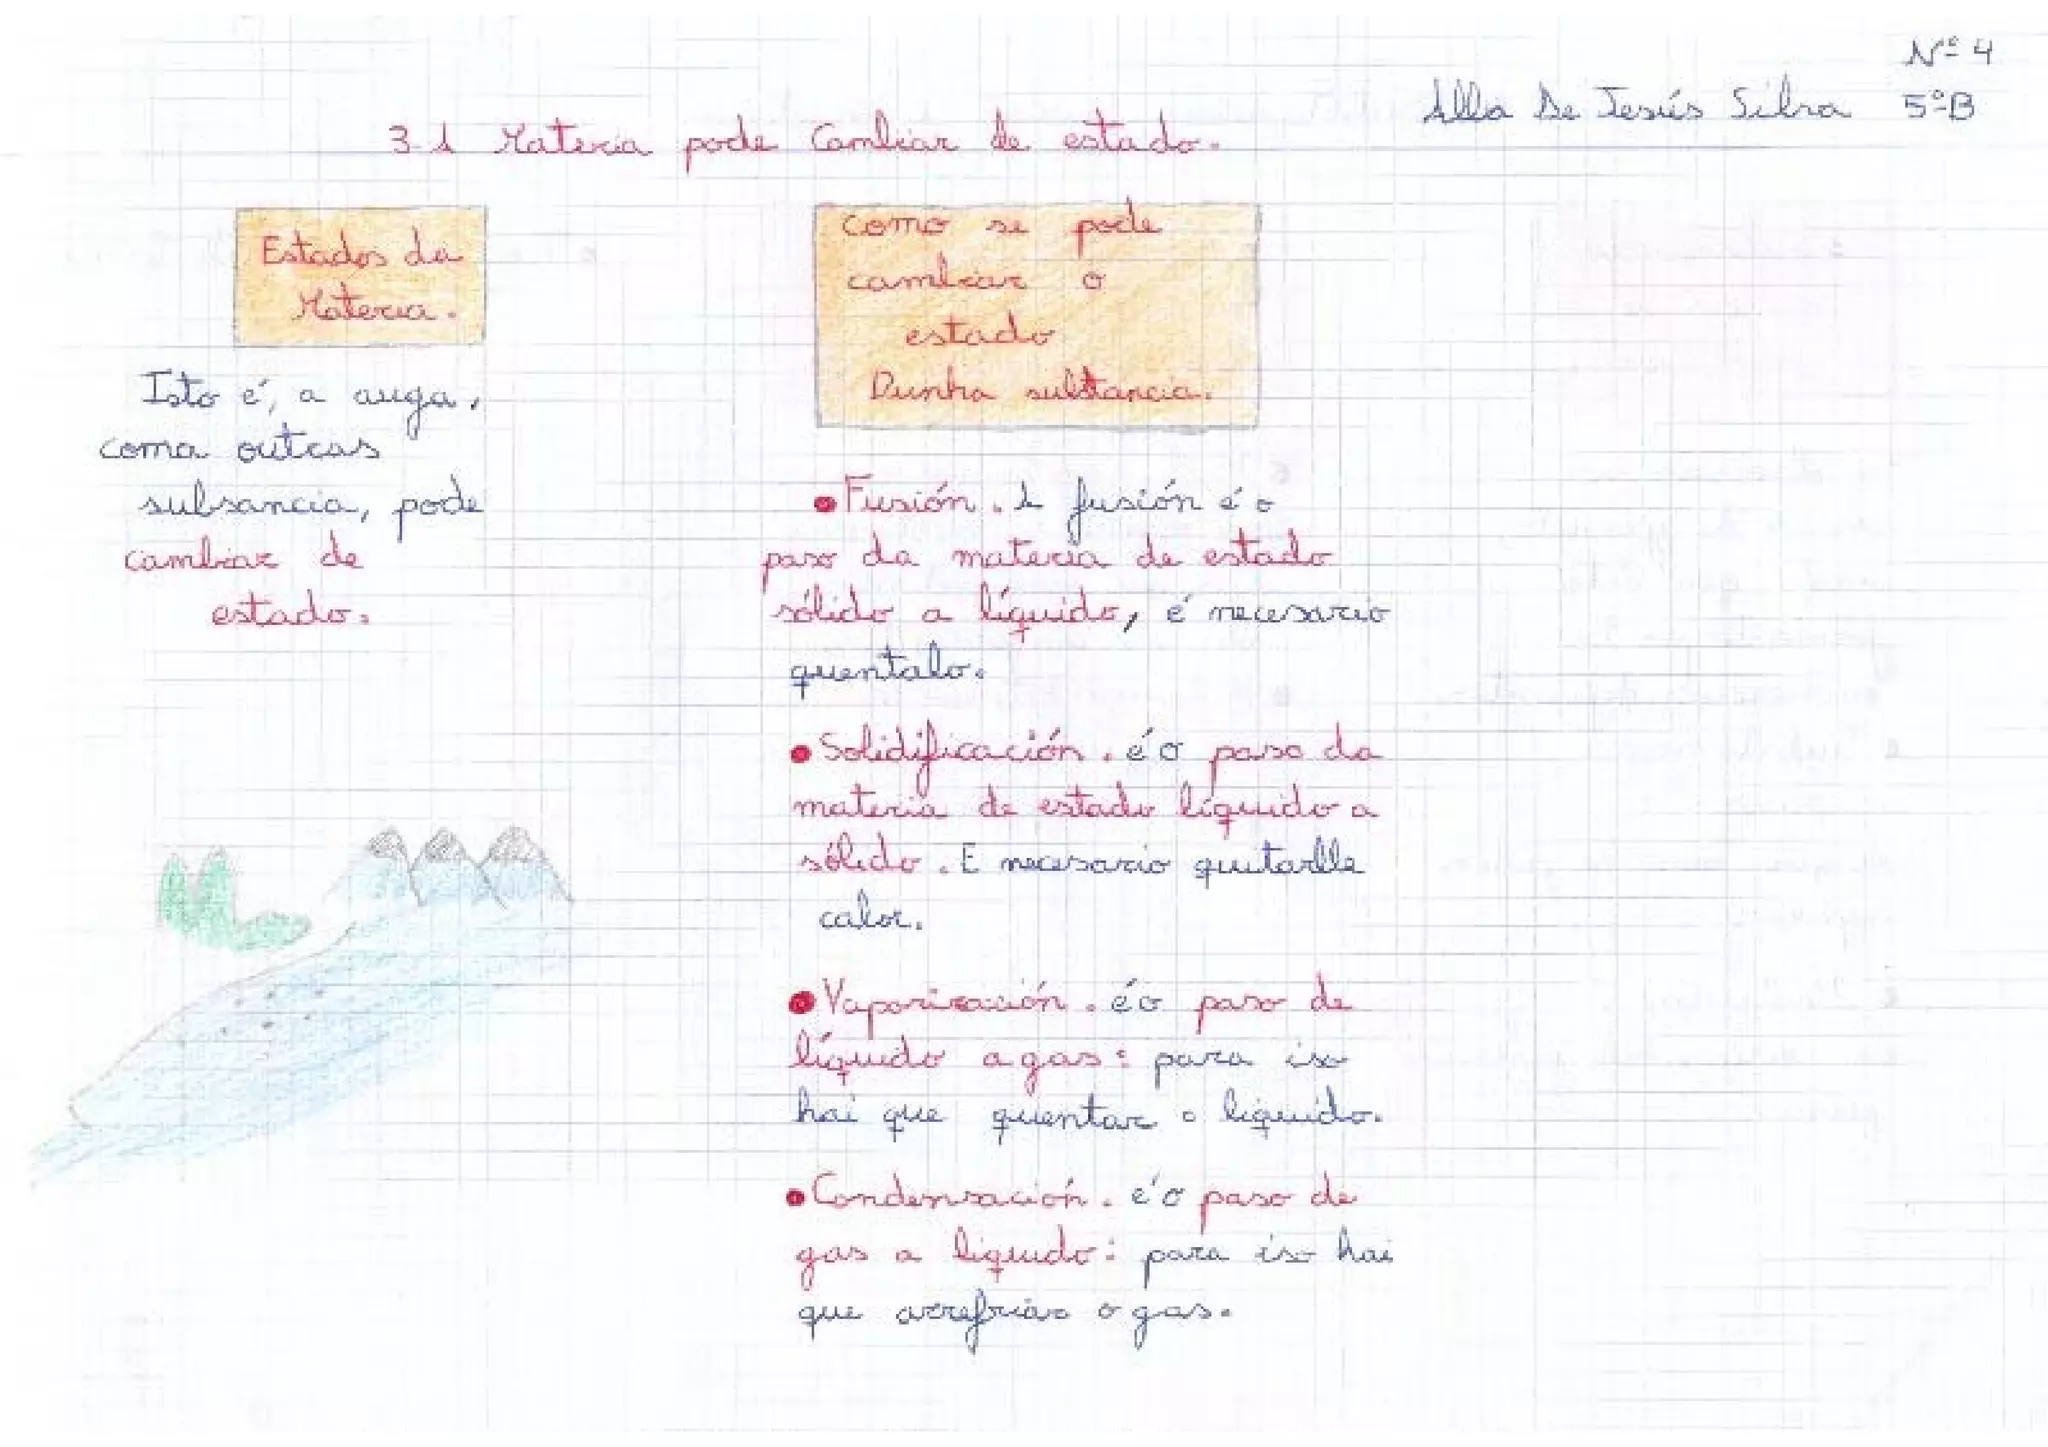 Nº 4
Alba De Jesús Silva 5ºB
3-A Materia pode Cambiar de estado.
Estados da
Materia.
Isto é, a auga,
coma outras
subsancia, pode
cambiar de
estado.
como se pode
cambiar o
estado
Dunha substancia.
• Fusión. A fusión é o
paso da materia de estado
sólido a líquido, é necesario
quentalo.
• Solidificación. é o paso da
materia de estado líquido a
sólido. E necesario quitarlle
calor.
• Vaporización. é o paso de
líquido a gas: para iso
hai que quentar o líquido.
• Condensación. é o paso de
gas a liquido: para iso hai
que arrefriar o gas.